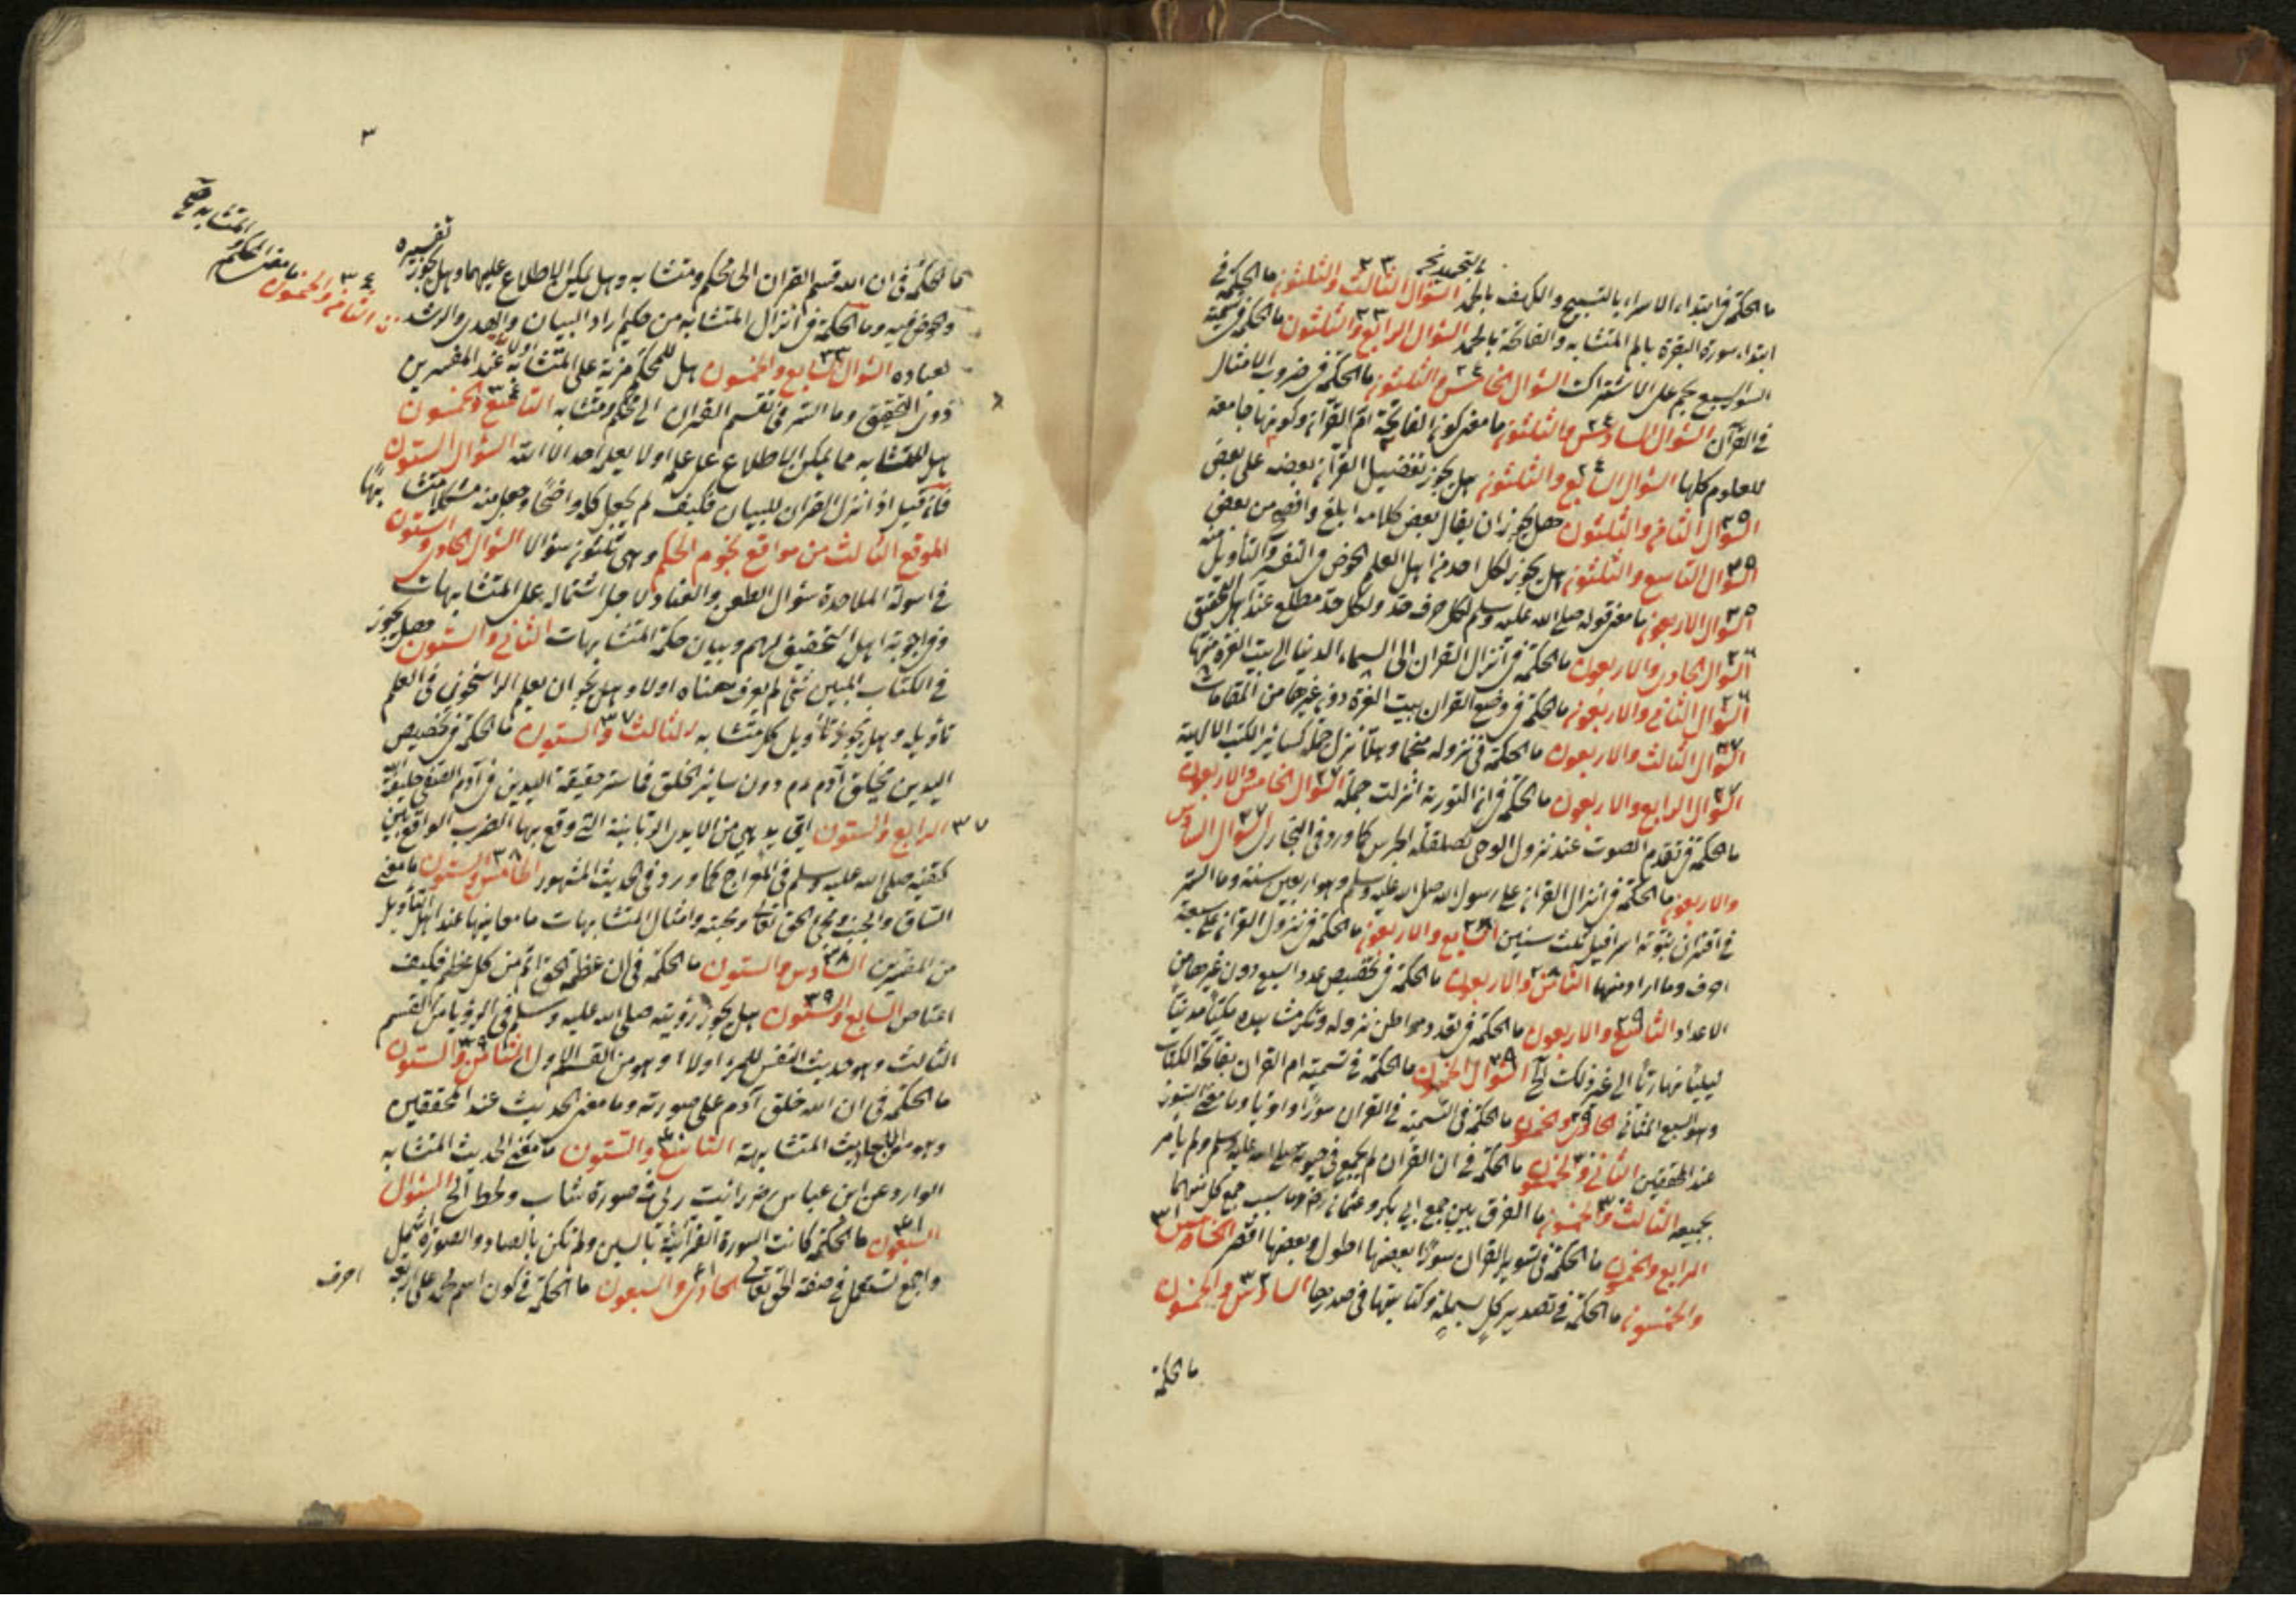 ما الحكمة في ابتداء الاسراء بالتسبيح والكهف بالحمد السؤال الثالث والثلثون ما الحكمة في
ابتداء سورة البقرة بالم المتشابه والفاتحة بالحمد السؤال الرابع والثلثون ما الحكمة في تسمية
السور السبع بحم على الاشتراك السؤال الخامس والثلثون ما الحكمة في ضروب الامثال
في القرآن السؤال السادس والثلثون ما معنى كون الفاتحة ام القرآن وكونها جامعة
للعلوم كلها السؤال السابع والثلثون هل يجوز تفضيل القرآن بعضه على بعض
السؤال الثامن والثلثون هل يجوز ان يقال بعض كلامه ابلغ وافصح من بعض
السؤال التاسع والثلثون هل يجوز لكل احد من اهل العلم الخوض في التفسير والتأويل منه
السؤال الاربعون ما معنى قوله صلى الله عليه وسلم لكل حرف حد ولكل حد مطلع عند اهل التحقيق
السؤال الحادي والاربعون ما الحكمة في انزال القران الى السماء الدنيا الى بيت العزة منها
السؤال الثاني والاربعون ما الحكمة في وضع القران ببيت العزة دون غيرها من المقامات
السؤال الثالث والاربعون ما الحكمة في نزوله منجما وهلا نزل جملة كسائر الكتب الالهية
السؤال الرابع والاربعون ما الحكمة في ان التورية انزلت جملة السؤال الخامس والاربعون
ما الحكمة في تقدم الصوت عند نزول الوحى كصلصلة الجرس كما ورد في البخاري السؤال السادس
والاربعون ما الحكمة في انزال القران على رسول الله صلى الله عليه وسلم وهو اربعين سنة وما السر
في اقتران نبوته اسرافيل ثلث سنين السابع والاربعون ما الحكمة في نزول القران على سبعة
احرف وما المراد منها الثامن والاربعون ما الحكمة في تخصيص عدد السبع دون غيرها من
الاعداد التاسع والاربعون ما الحكمة في تعدد مواطن نزوله وتكرر مشاهده مكيا مدنيا
ليليا نهاريا الى غير ذلك الخ السؤال الخمسون ما الحكمة في تسمية ام القران بفاتحة الكتاب
وهو السبع المثاني الحادي والخمسون ما الحكمة في التسمية في القران سورا وما معنى السور
عند المحققين الثاني والخمسون ما الحكمة في ان القران لم يجمع في حيوته صلى الله عليه وسلم ولم يامر
بجمعه الثالث والخمسون ما الفرق بين جمع ابي بكر وعثمان وما سبب جمع كل منهما
الرابع والخمسون ما الحكمة في تسوير القران سورا بعضها اطول وبعضها اقصر الخامس
والخمسون ما الحكمة في تصدير كل بسملة وكتابتها في صدرها السادس والخمسون
ما الحكمة
٣
ما الحكمة في ان الله قسم القران الى محكم ومتشابه وهل يمكن الاطلاع عليهما وهل يجوز تفسيره
والخوض فيه وما الحكمة في انزال المتشابه من حكيم اراد البيان والهدى والرشد
لعباده السؤال السابع والخمسون هل للمحكم مزية على المتشابه اولا عند المفسرين
ذوي التحقيق وما السر في تقسيم القران الى محكم ومتشابه التاسع والخمسون
الثامن والخمسون ما معنى المحكم والمتشابه صح
هل للمتشابه مما يمكن الاطلاع على علمه اولا يعلمه احد الا الله السؤال الستون
فان قيل اذا انزل القران للبيان فكيف لم يجعل كله واضحا وجعل منه مشكلا متشابها
الموقع الثالث من مواقع نجوم الحكم وهى ثلثون سؤالا السؤال الحادي والستون
في اسولة الملاحدة سؤال الطعن والعناد لاجل اشتماله على المتشابهات
وفي اجوبة اهل التحقيق لهم وبيان حكمة المتشابهات الثاني والستون هل يجوز
في الكتاب المبين شئ لم يعرف معناه اولا وهل يجوز ان يعلم الراسخون في العلم
تاويله وهل يجوز تأويل كل متشابه الثالث والستون ما الحكمة في تخصيص
اليدين بخلق آدم دون سائر الخلق فما سر حقيقة اليدين في آدم الصفي خليفة الله
الرابع والستون اي يد هى من الايدي الربانية التى وقع بها الضرب الواقع بين
كتفيه صلى الله عليه وسلم في المعراج كما ورد في الحديث المشهور الخامس والستون ما معنى
الساق والجنب ومجئ الحق تعالى ومحبته وامثال المتشابهات ما معانيها عند اهل التأويل
من المفسرين السادس والستون ما الحكمة في ان عظمة الحق اتم من كل عظم فكيف
اعتاص السابع والستون هل يجوز رؤيته صلى الله عليه وسلم في الرؤيا من القسم
الثالث وهو حديث النفس للمرء اولا او هو من القسم الاول الثامن والستون
ما الحكمة في ان الله خلق آدم على صورته وما معنى الحديث عند المحققين
وهو من الاحاديث المتشابهة التاسع والستون ما معنى الحديث المتشابه
الوارد عن ابن عباس رض رايت ربى في صورة شاب وقطط الخ السؤال
السبعون ما الحكمة كانت السورة القرآنية بالسين ولم تكن بالصاد والصورة اشمل
واجمع تستعمل في صفة الحق تعالى الحادي والسبعون ما الحكمة في كون اسم محمد على اربعة
احرف